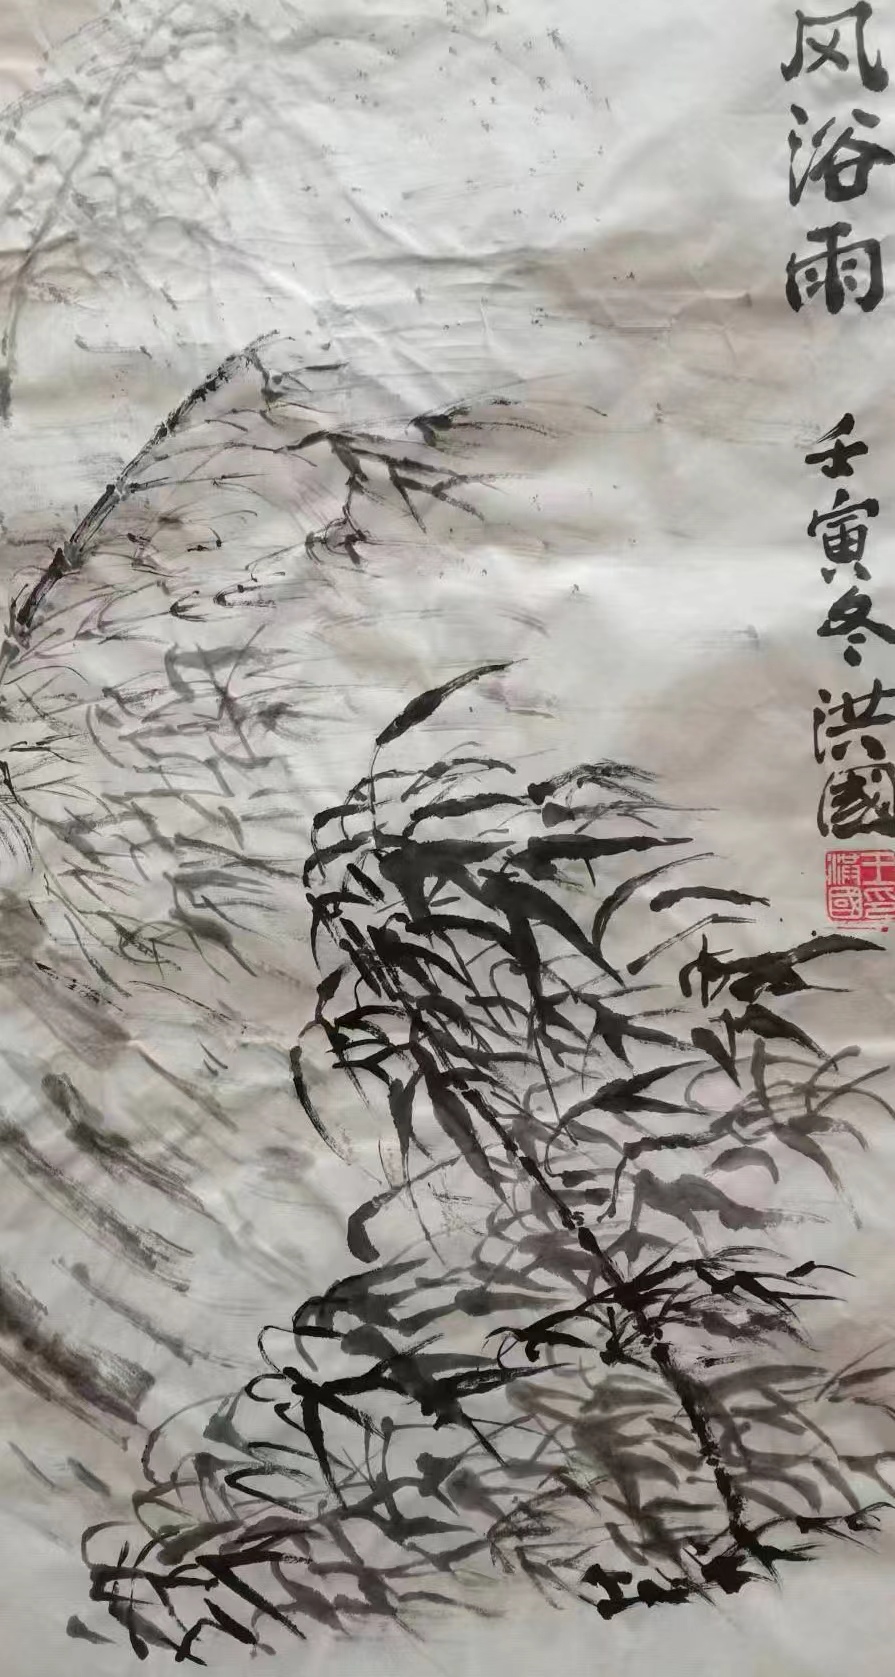 风浴雨
壬寅冬 洪國
王洪國印